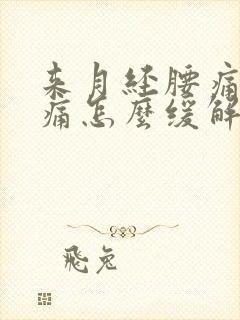 来月经腰痛
痛怎麽缓解
飛兔